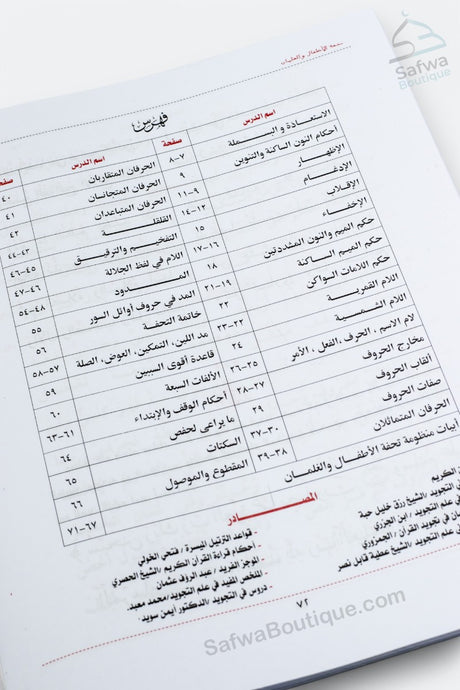 تحفة الأطفال والغلمان
Safwa
Boutique
فهرس
اسم الدرس صفحة اسم الدرس صفحة
الاستعاذة والبسملة ٧-٨ الحرفان المتقاربان ٤٠
أحكام النون الساكنة والتنوين ٩ الحرفان المتجانسان ٤١
الإظهار ٩-١١ الحرفان المتباعدان ٤٢
الإدغام ١٢-١٤ القلقلة ٤٢-٤٤
الإقلاب ١٥ التفخيم والترقيق ٤٥-٤٦
الإخفاء ١٦-١٧ اللام في لفظ الجلالة ٤٦-٤٧
حكم الميم والنون المشددتين ١٨ المدود ٤٨-٥٤
حكم الميم الساكنة ١٩-٢١ المد في حروف أوائل السور ٥٥
حكم اللامات السواكن ٢٢ خاتمة التحفة ٥٦
اللام القمرية ٢٢-٢٣ مد اللين، التمكين، العوض، الصلة ٥٧-٥٨
اللام الشمسية ٢٤ قاعدة أقوى السببين ٥٩
لام الاسم ، الحرف ،الفعل ، الأمر ٢٥-٢٦ الألفات السبعة ٦٠
مخارج الحروف ٢٧-٢٨ أحكام الوقف والإبتداء ٦١-٦٣
ألقاب الحروف ٢٩ ما يراعى لحفص ٦٤
صفات الحروف ٣٠-٣٧ السكتات ٦٥
الحرفان المتماثلان ٣٨-٣٩ المقطوع والموصول ٦٦
أبيات منظومة تحفة الأطفال والغلمان ٦٧-٧١
المصادر
الكريم
التجويد /الشيخ رزق خليل حبة
في علم التجويد / ابن الجزري
في تجويد القرآن / الجمزوري
علم التجويد /الشيخ عطية قابل نصر
- قواعد الترتيل الميسرة / فتحي الخولي
- أحكام قراءة القرآن الكريم /الشيخ الحصري
- الموجز الفريد / عبد الروف عشمان
- الملخص المفيد في علم التجويد/محمد معبد
- دروس في التجويد /الدكتور أيمن سويد
٧٢
SafwaBoutique.com